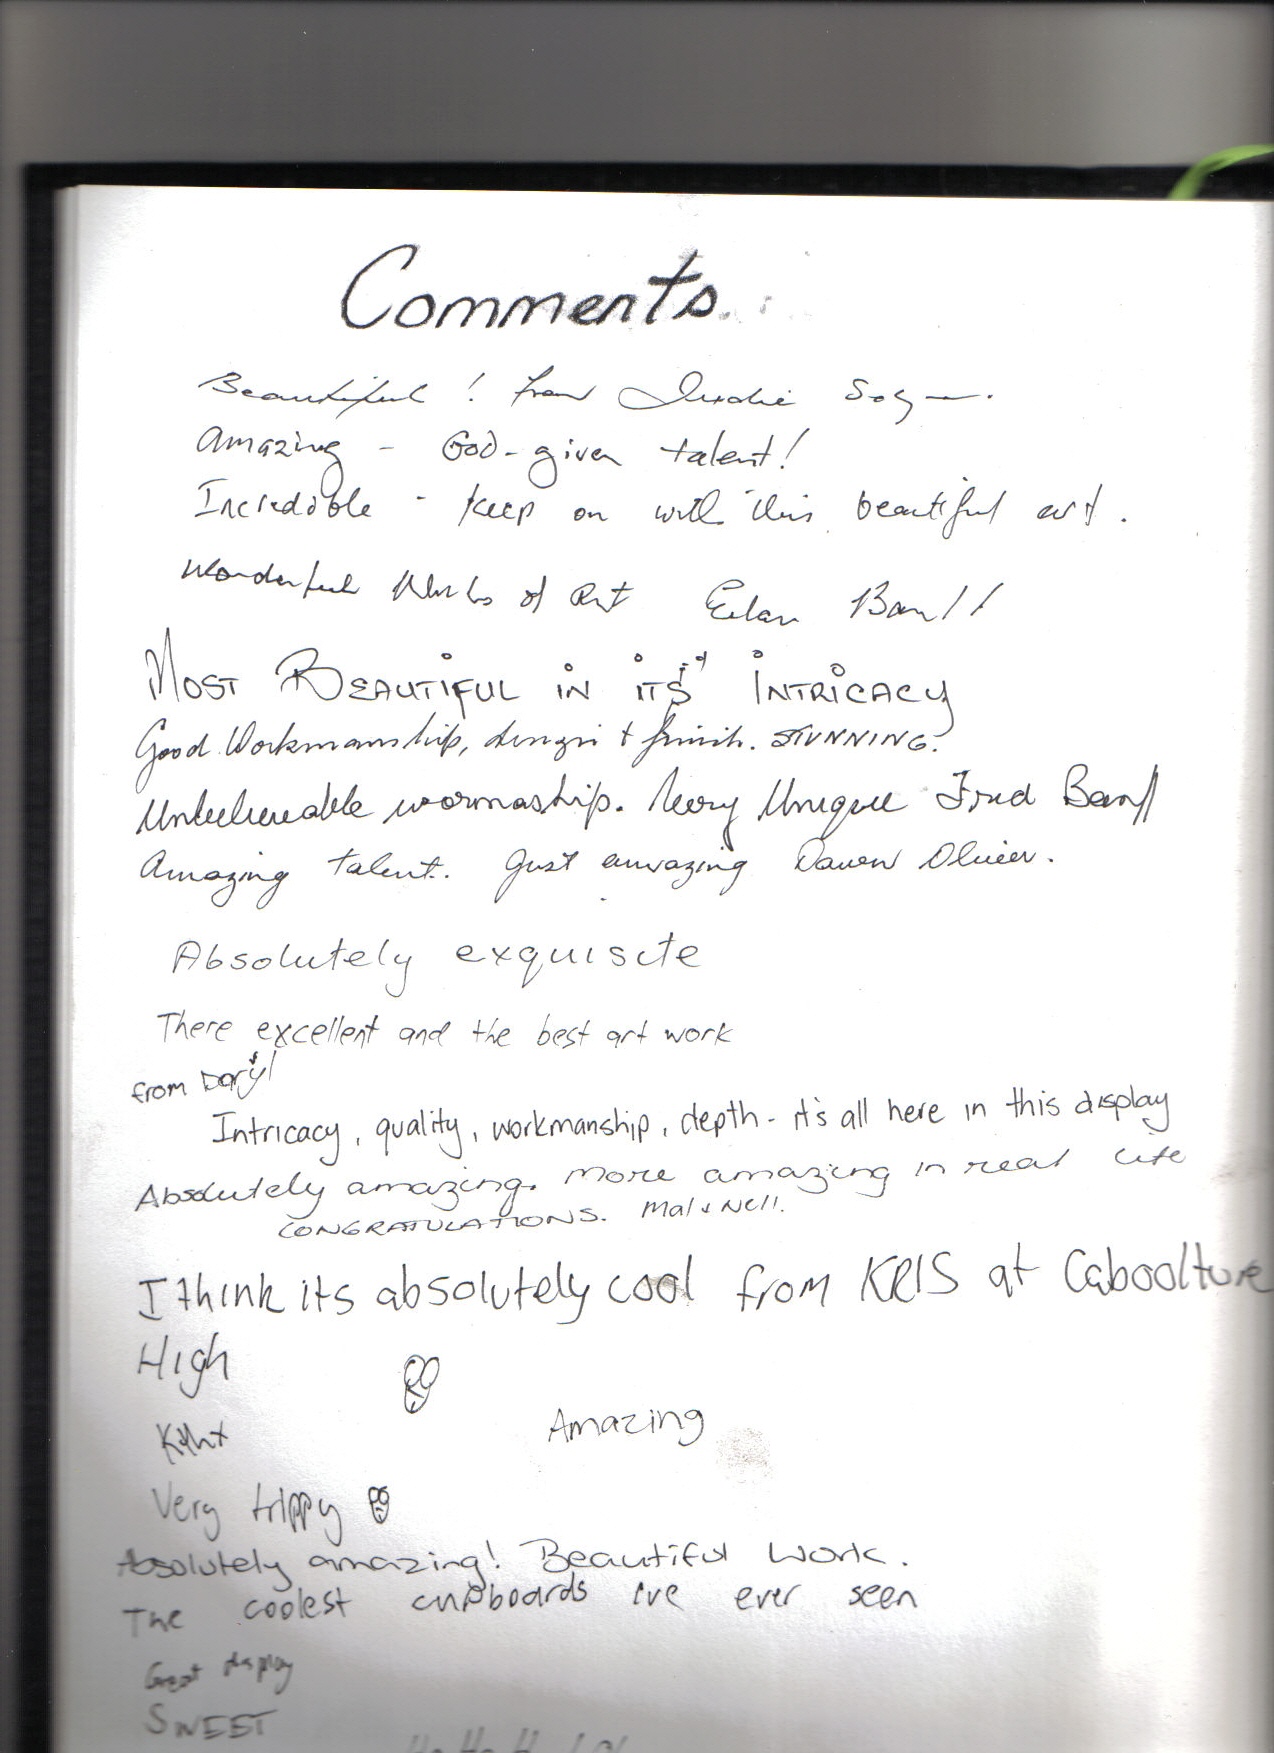 Comments.
Beautiful! from
Amazing - God-given talent!
Incredible - keep on with this beautiful art.
Wonderful Works of Art
MOST BEAUTIFUL IN ITS INTRICACY
Good Workmanship, design + finish. STUNNING.
Unbelieveable wormaship. Very Unique Fred
Amazing talent. Just amazing
Absolutely exquisite
There excellent and the best art work
from Daryl
Intricacy, quality, workmanship, depth - it's all here in this display
Absolutely amazing. More amazing in real life
CONGRATULATIONS. Mal & Nell.
I think its absolutely cool from KRIS at Caboolture
High
Amazing
Very trippy
Absolutely amazing! Beautiful Work.
The coolest cupboards I've ever seen
Great display
SWEET